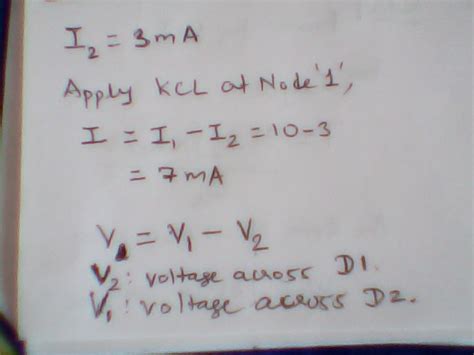 I₂ = 3mA
Apply KCL at Node '1',
I = I₁ - I₂ = 10-3
= 7mA
V = V₁ - V₂
V₂: voltage across D1.
V₁: voltage across D2.